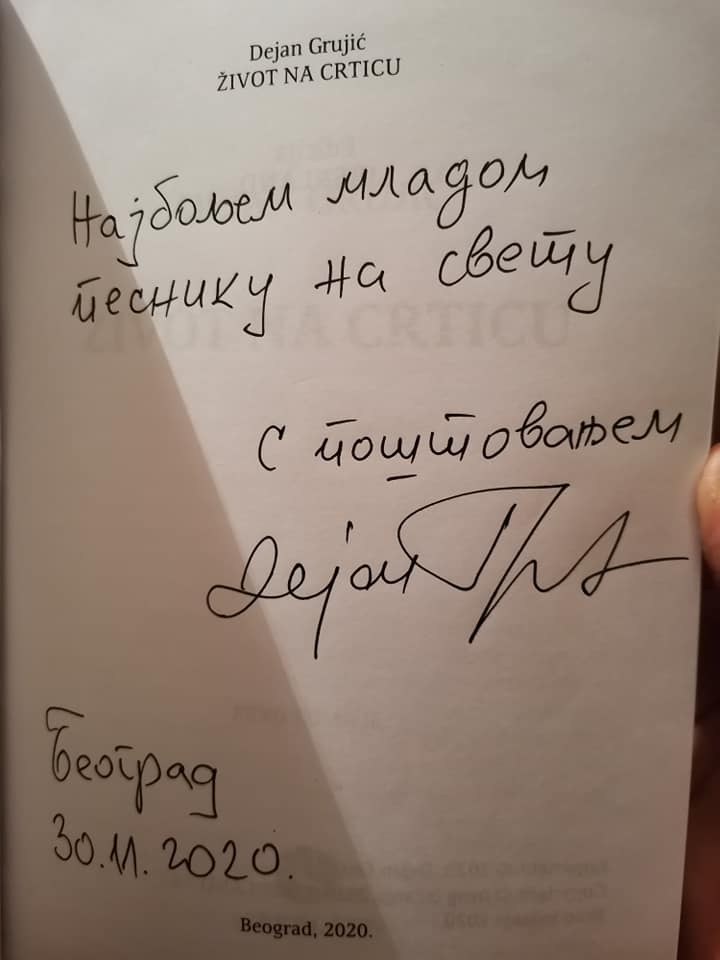 Dejan Grujić
ŽIVOT NA CRTICU
Најбољем младом
песнику на свету
С поштовањем
Дејан
Београд
30.11.2020.
Beograd, 2020.